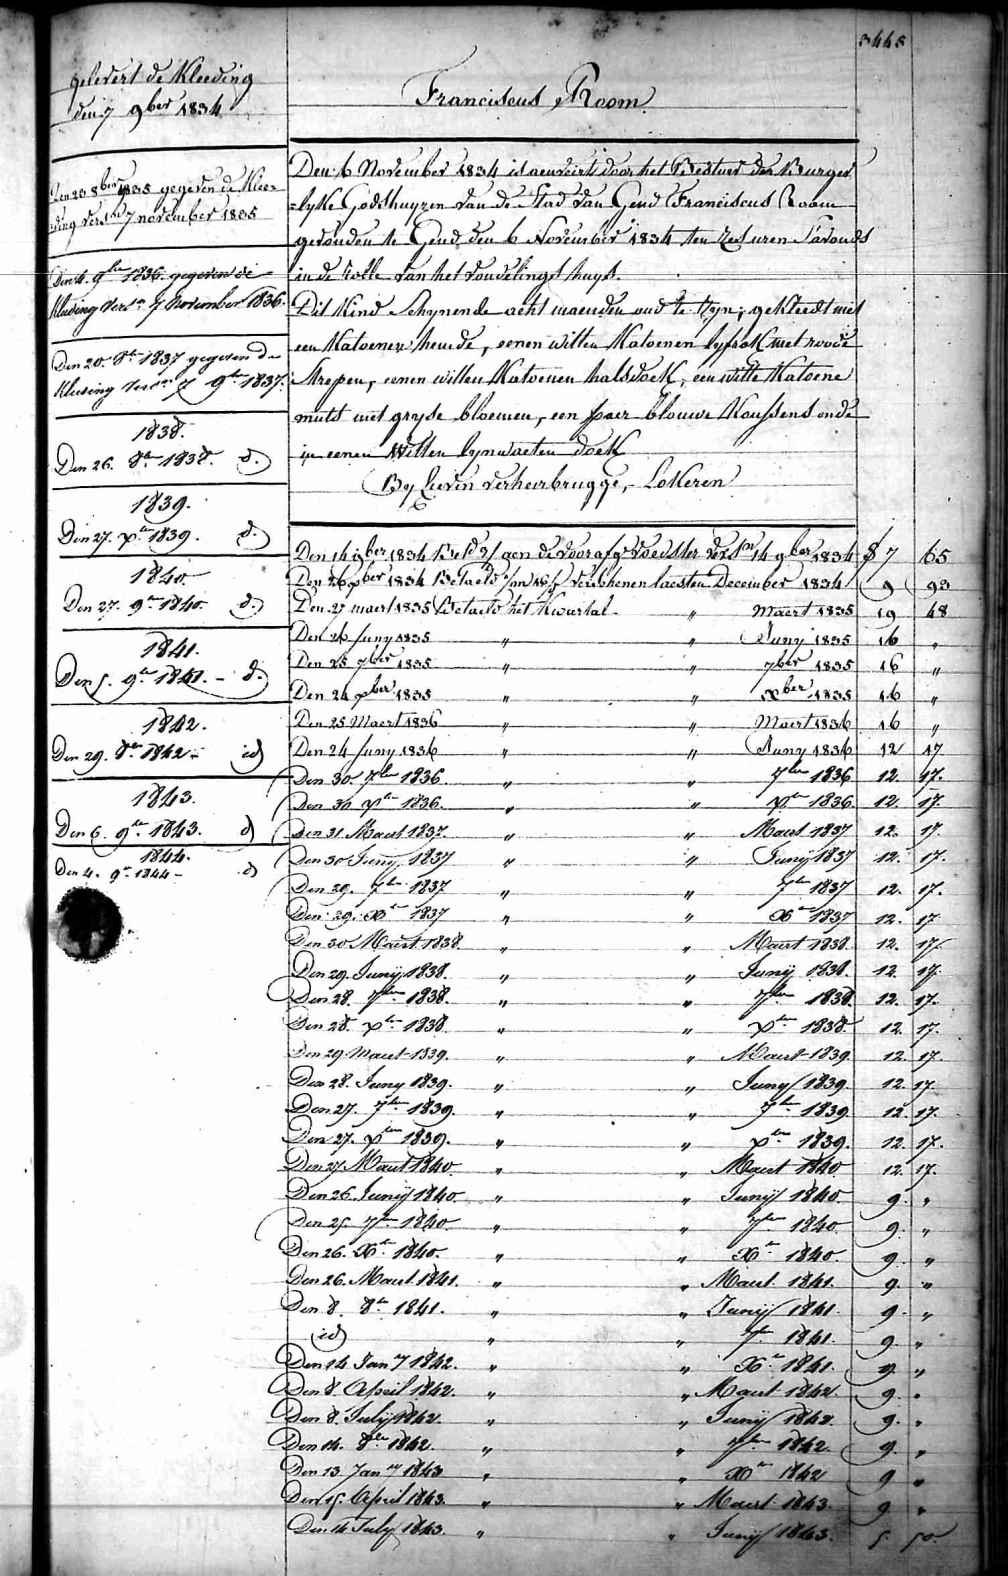 3445
gelevert de Kleeding
den 7 9ber 1834
Den 23 8ber 1835 gegeven de Klee=
ding verst 7 november 1835
Den 4. 9ber 1836 gegeven de
Kleeding versn 7 November 1836.
Den 20. 8r 1837 gegeven de
Kleeding versn 7 9r 1837.
1838.
Den 26. 8r 1838. d.
1839.
Den 27. xber 1839. d.
1840.
Den 27. 9r 1840. d.
1841.
Den 5. 9r 1841. - d.
1842.
Den 29. 8r 1842 - id
1843.
Den 6. 9r 1843. d
1844.
Den 4. 9r 1844 - d
Franciscus Room
Den 6 November 1834 is aenveirt door het Bestuer der Burger
=lyke Godshuyzen van de Stad van Gend Franciscus Room
gevonden te Gend den 6 November 1834 ten zes uren s'avonds
in de rolle van het vondelings huys.
Dit Kind schynende acht maenden oud te zyn; gekleedt met
een Katoenen hemde, eenen witten Katoenen lyfrok met roode
strepen, eenen witten Katoenen halsdoek, een witte Katoene
muts met gryse bloemen, een paer blouwe Koussens ende
in eenen witten lynwaeten doek
By Lievin verheirbrugge, Lokeren
Den 14 9ber 1834 Beld aen de voorafg voedster versn 14 9ber 1834 7 65
Den 26 xber 1834 Betaeld verschenen laesten December 1834 9 93
Den 27 maert 1835 Betaeld het Kwartal " Maert 1835 19 48
Den 26 Juny 1835 " " Juny 1835 16 "
Den 25 7ber 1835 " " 7ber 1835 16 "
Den 24 xber 1835 " " xber 1835 16 "
Den 25 Maert 1836 " " Maert 1836 16 "
Den 24 Juny 1836 " " Juny 1836 12 17
Den 30 7ber 1836 " " 7ber 1836 12. 17.
Den 30 xber 1836. " " xber 1836. 12. 17.
Den 31. Maert 1837. " " Maert 1837 12. 17.
Den 30 Juny 1837 " " Juny 1837 12. 17.
Den 29. 7ber 1837 " " 7ber 1837 12. 17.
Den 29. Xber 1837 " " Xber 1837 12. 17
Den 30 Maert 1838. " " Maert 1838. 12. 17.
Den 29. Juny 1838. " " Juny 1838. 12. 17.
Den 28. 7ber 1838. " " 7ber 1838. 12. 17.
Den 28. xber 1838. " " xber 1838. 12. 17.
Den 29 Maert 1839. " " Maert 1839. 12. 17.
Den 28. Juny 1839. " " Juny 1839. 12. 17.
Den 27. 7ber 1839. " " 7ber 1839. 12 17.
Den 27. xber 1839. " " xber 1839. 12. 17.
Den 27 Maert 1840. " " Maert 1840. 12. 17.
Den 26. Juny 1840. " " Juny 1840. 9. "
Den 25 7ber 1840. " " 7ber 1840. 9. "
Den 26. Xber 1840. " " Xber 1840. 9. "
Den 26. Maert 1841. " " Maert 1841. 9. "
Den 8. 8ber 1841. " " Juny 1841. 9. "
id " " 7ber 1841. 9. "
Den 14 Jany 1842. " " Xber 1841. 9. "
Den 8. April 1842. " " Maert 1842. 9. "
Den 8. July 1842. " " Juny 1842. 9. "
Den 14. 8ber 1842. " " 7ber 1842. 9. "
Den 13 Jany 1843 " " Xber 1842 9 "
Den 15. April 1843. " " Maert 1843. 9 "
Den 14 July 1843. " " Juny 1843. 5. 50.